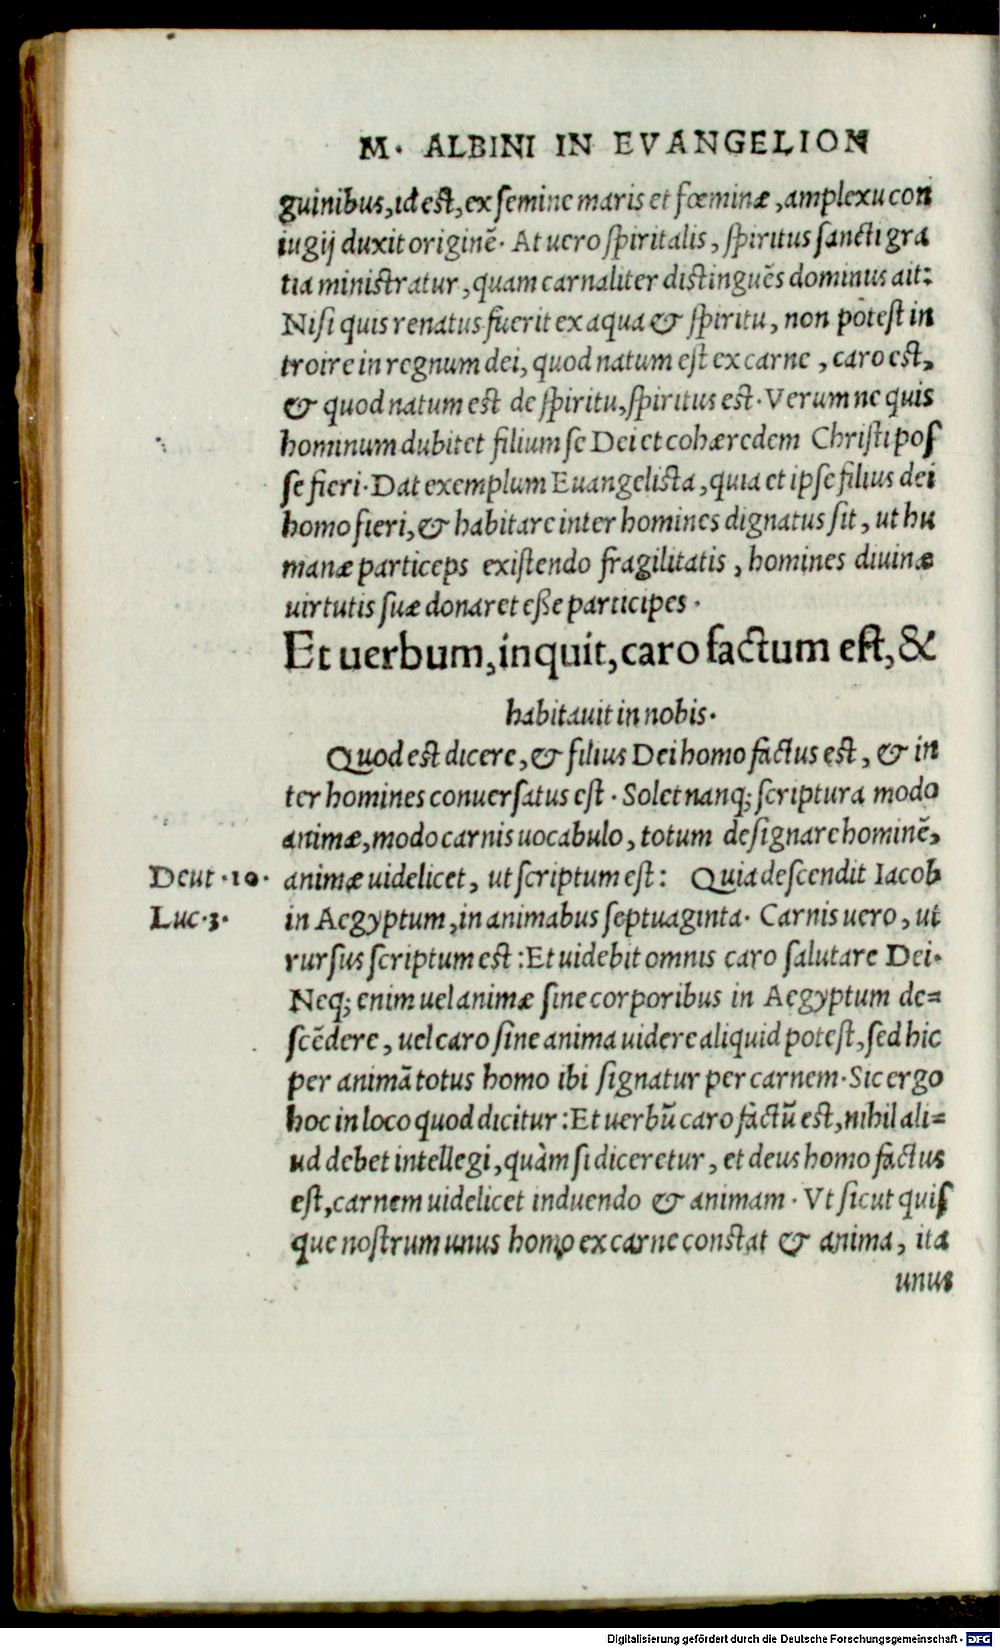 M. ALBINI IN EVANGELION
guinibus, id est, ex semine maris et fœminæ, amplexu con
iugij duxit originẽ. At uero spiritalis, spiritus sancti gra
tia ministratur, quam carnaliter distinguẽs dominus ait:
Nisi quis renatus fuerit ex aqua & spiritu, non potest in
troire in regnum dei, quod natum est ex carne, caro est,
& quod natum est de spiritu, spiritus est. Verum ne quis
hominum dubitet filium se Dei et cohæredem Christi pos
se fieri. Dat exemplum Euangelista, quia et ipse filius dei
homo fieri, & habitare inter homines dignatus sit, ut hu
manæ particeps existendo fragilitatis, homines diuinæ
uirtutis suæ donaret eße participes.
Et uerbum, inquit, caro factum est, &
habitauit in nobis.
Quod est dicere, & filius Dei homo factus est, & in
ter homines conuersatus est. Solet nanq; scriptura modo
animæ, modo carnis uocabulo, totum designare hominẽ,
Deut. 10. animæ uidelicet, ut scriptum est: Quia descendit Iacob
Luc. 3. in Aegyptum, in animabus septuaginta. Carnis uero, ut
rursus scriptum est: Et uidebit omnis caro salutare Dei.
Neq; enim uel animæ sine corporibus in Aegyptum de=
scẽdere, uel caro sine anima uidere aliquid potest, sed hic
per animã totus homo ibi signatur per carnem. Sic ergo
hoc in loco quod dicitur: Et uerbũ caro factũ est, nihil ali=
ud debet intellegi, quàm si diceretur, et deus homo factus
est, carnem uidelicet induendo & animam. Vt sicut quis
que nostrum unus homo ex carne constat & anima, ita
unus
Digitalisierung gefördert durch die Deutsche Forschungsgemeinschaft - DFG